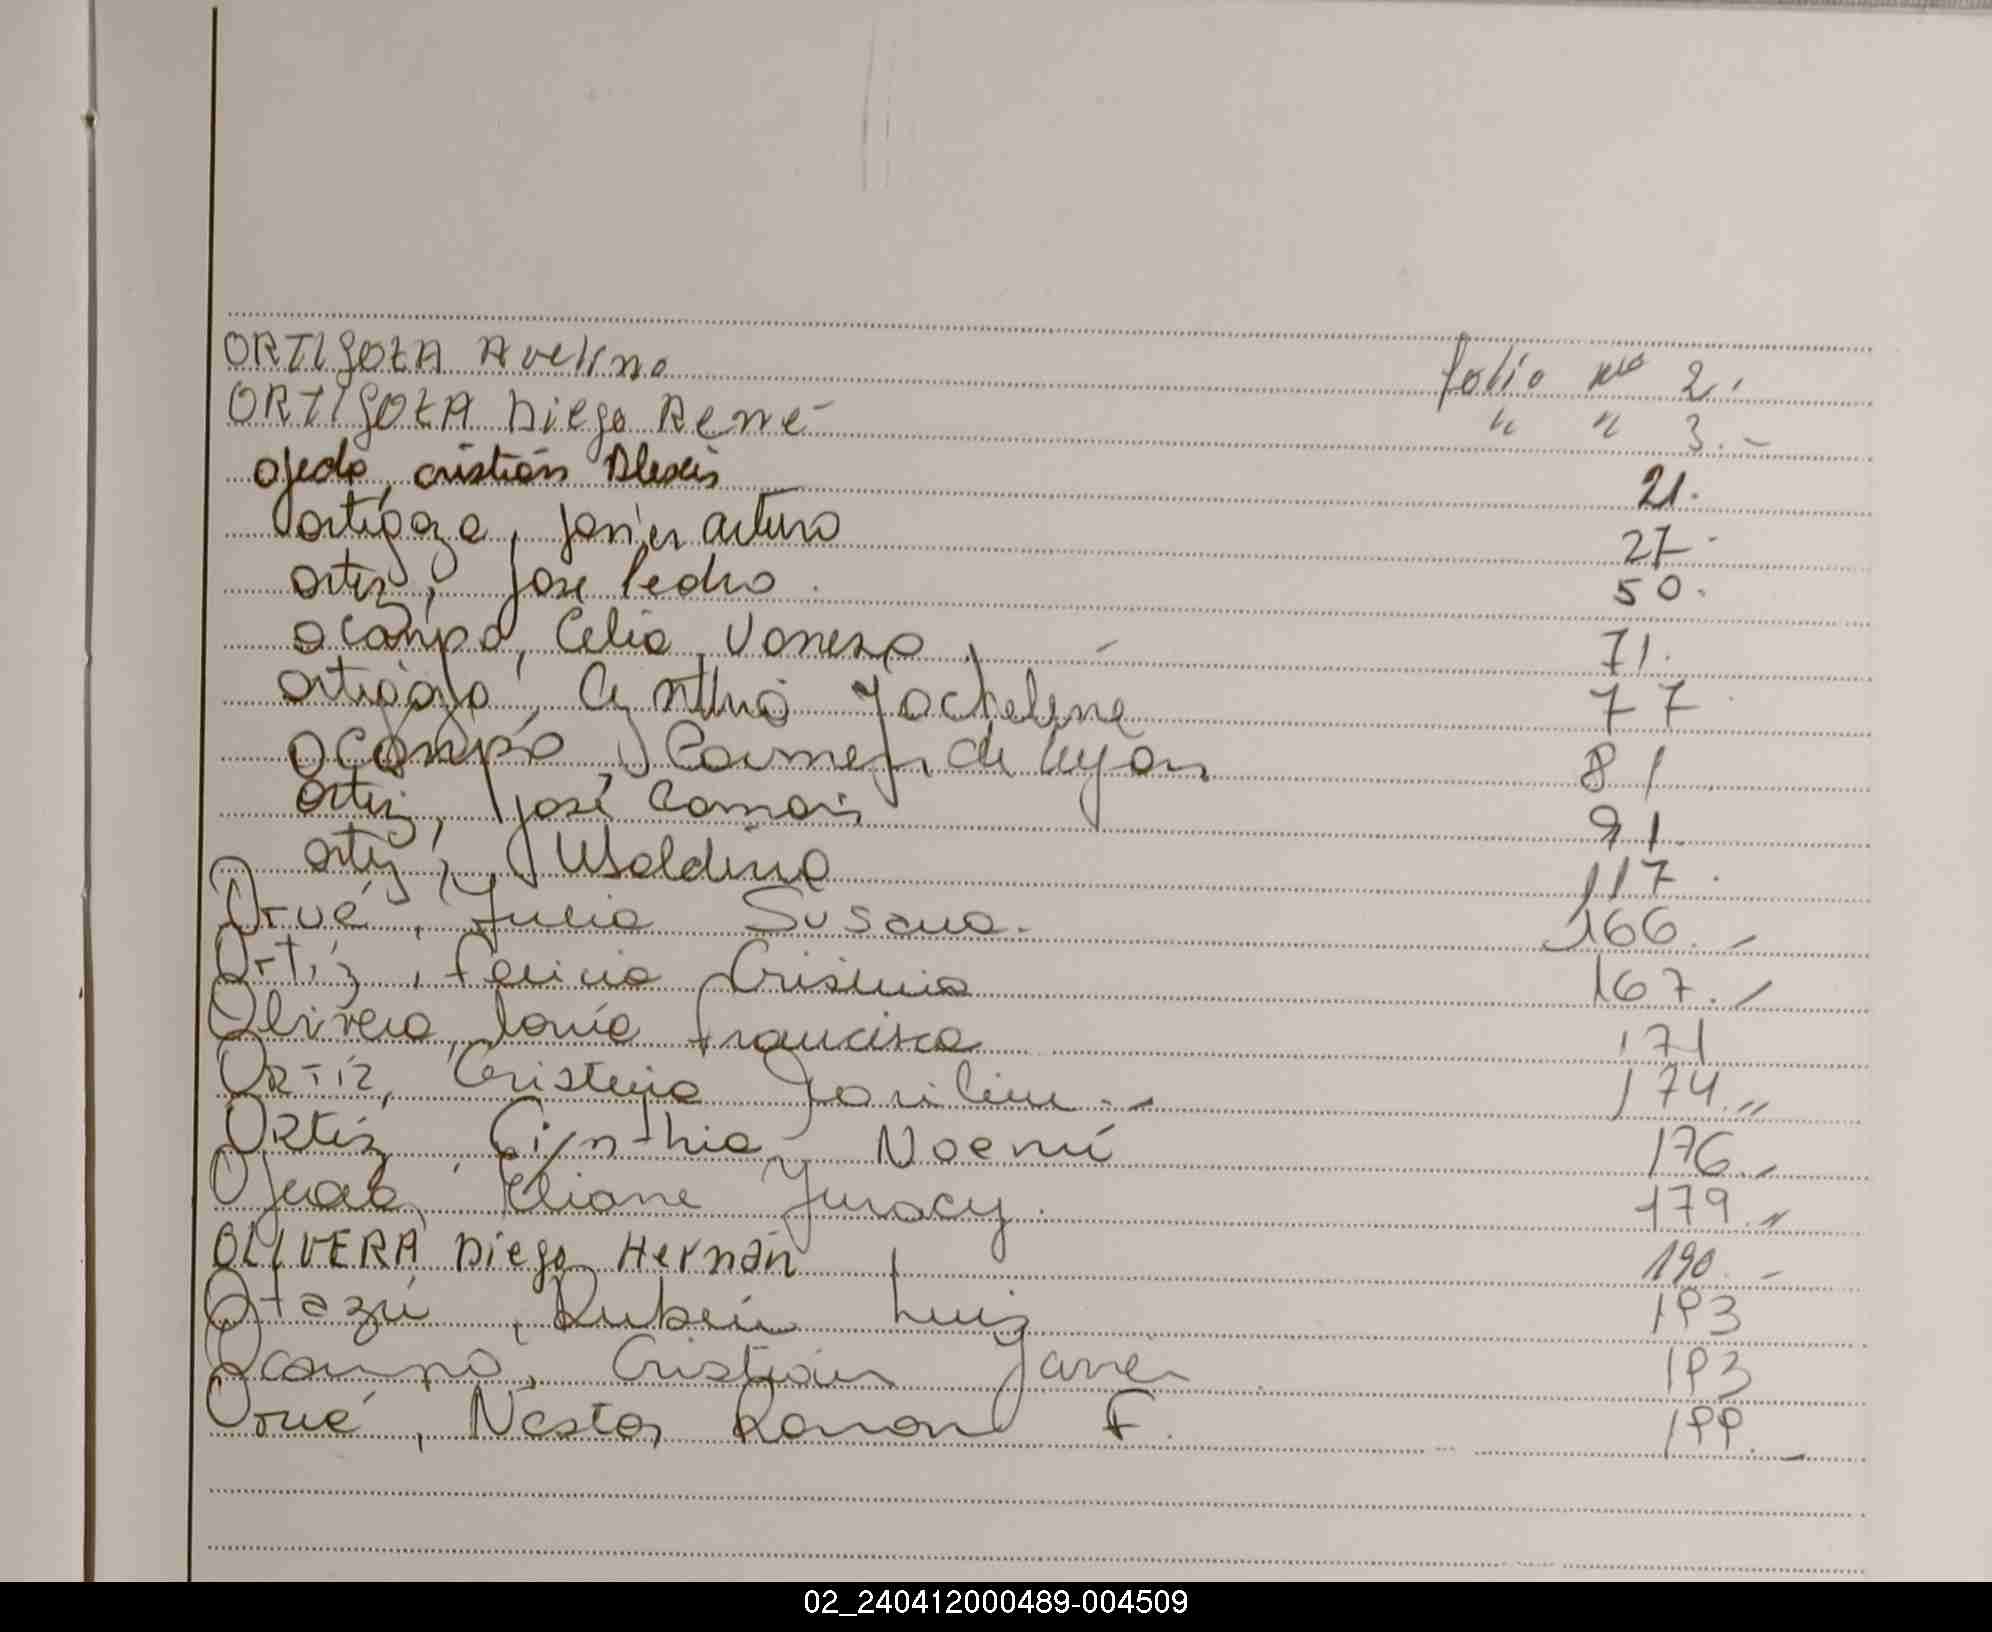 ORTIGOZA Avelino folio nro 2.
ORTIGOZA Diego René " " 3.-
Ojeda, Cristián Alexis 21.
Ortigoza, Javier Arturo 27.
Ortiz, José Pedro. 50.
Ocampo, Celia Vanesa 71.
Ortigoza, Cynthia Jochelene 77.
Ocampo, Carmen de Luján 81
Ortiz, José Ramón 91.
Ortiz, Ubaldina 117.
Orué, Julia Susana. 166.-
Ortiz, Felicia Crisinia 167.-
Olivera, María Francisca 171
ORTIZ, Cristina Marilin.- 174.-
Ortiz, Cinthia Noemí 176.-
Ojeda, Eliane Juracy. 179.-
OLIVERA Diego Hernán 190.-
Otazú, Rubén Luiz 193
Ocampo, Cristián Javier 193
Orué, Néstor Ramon F. 199.-
02_240412000489-004509